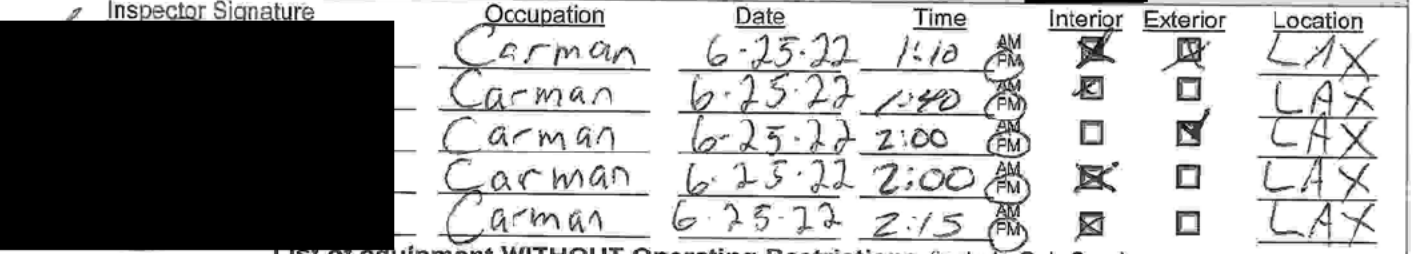 Inspector Signature Occupation Date Time Interior Exterior Location
Carman 6-25-22 1:10 AM PM ☒ ☒ LAX
Carman 6-25-22 1:40 AM PM ☒ ☐ LAX
Carman 6-25-22 2:00 AM PM ☐ ☒ LAX
Carman 6-25-22 2:00 AM PM ☒ ☐ LAX
Carman 6-25-22 2:15 AM PM ☒ ☐ LAX
List of equipment WITHOUT Operating Restrictions